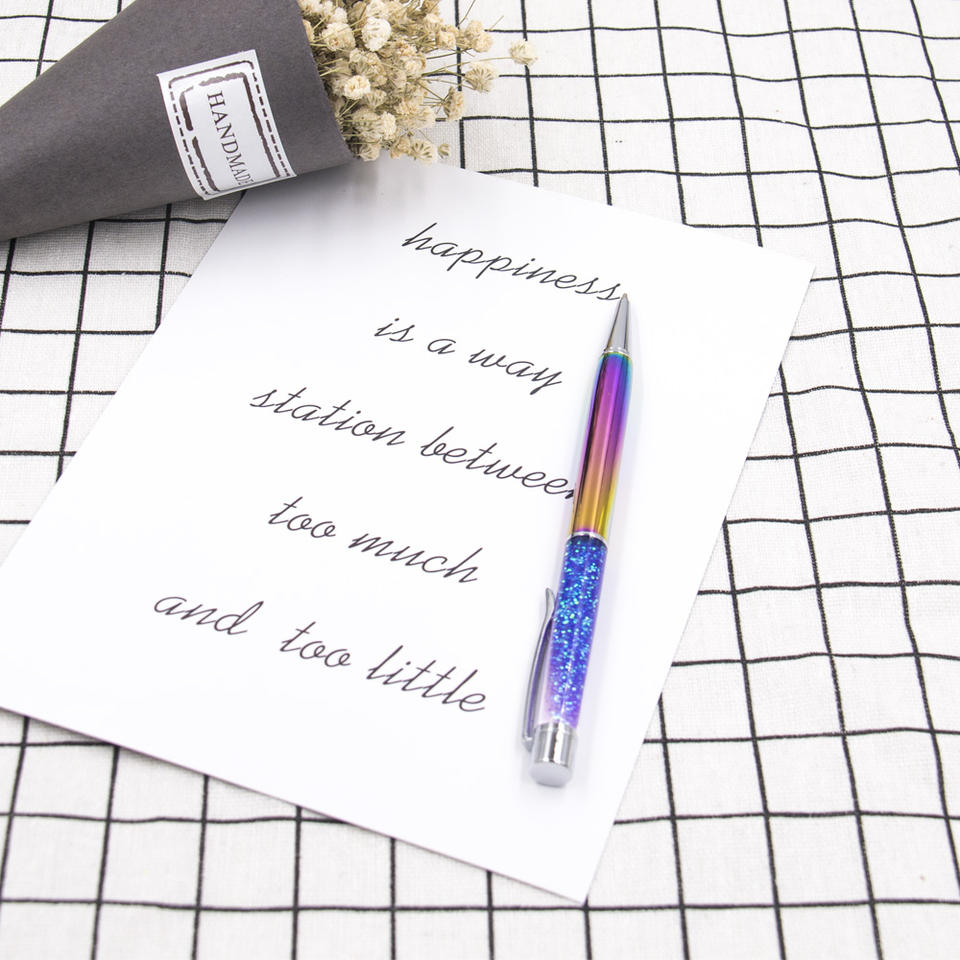 HANDMADE
happiness
is a way
station between
too much
and too little